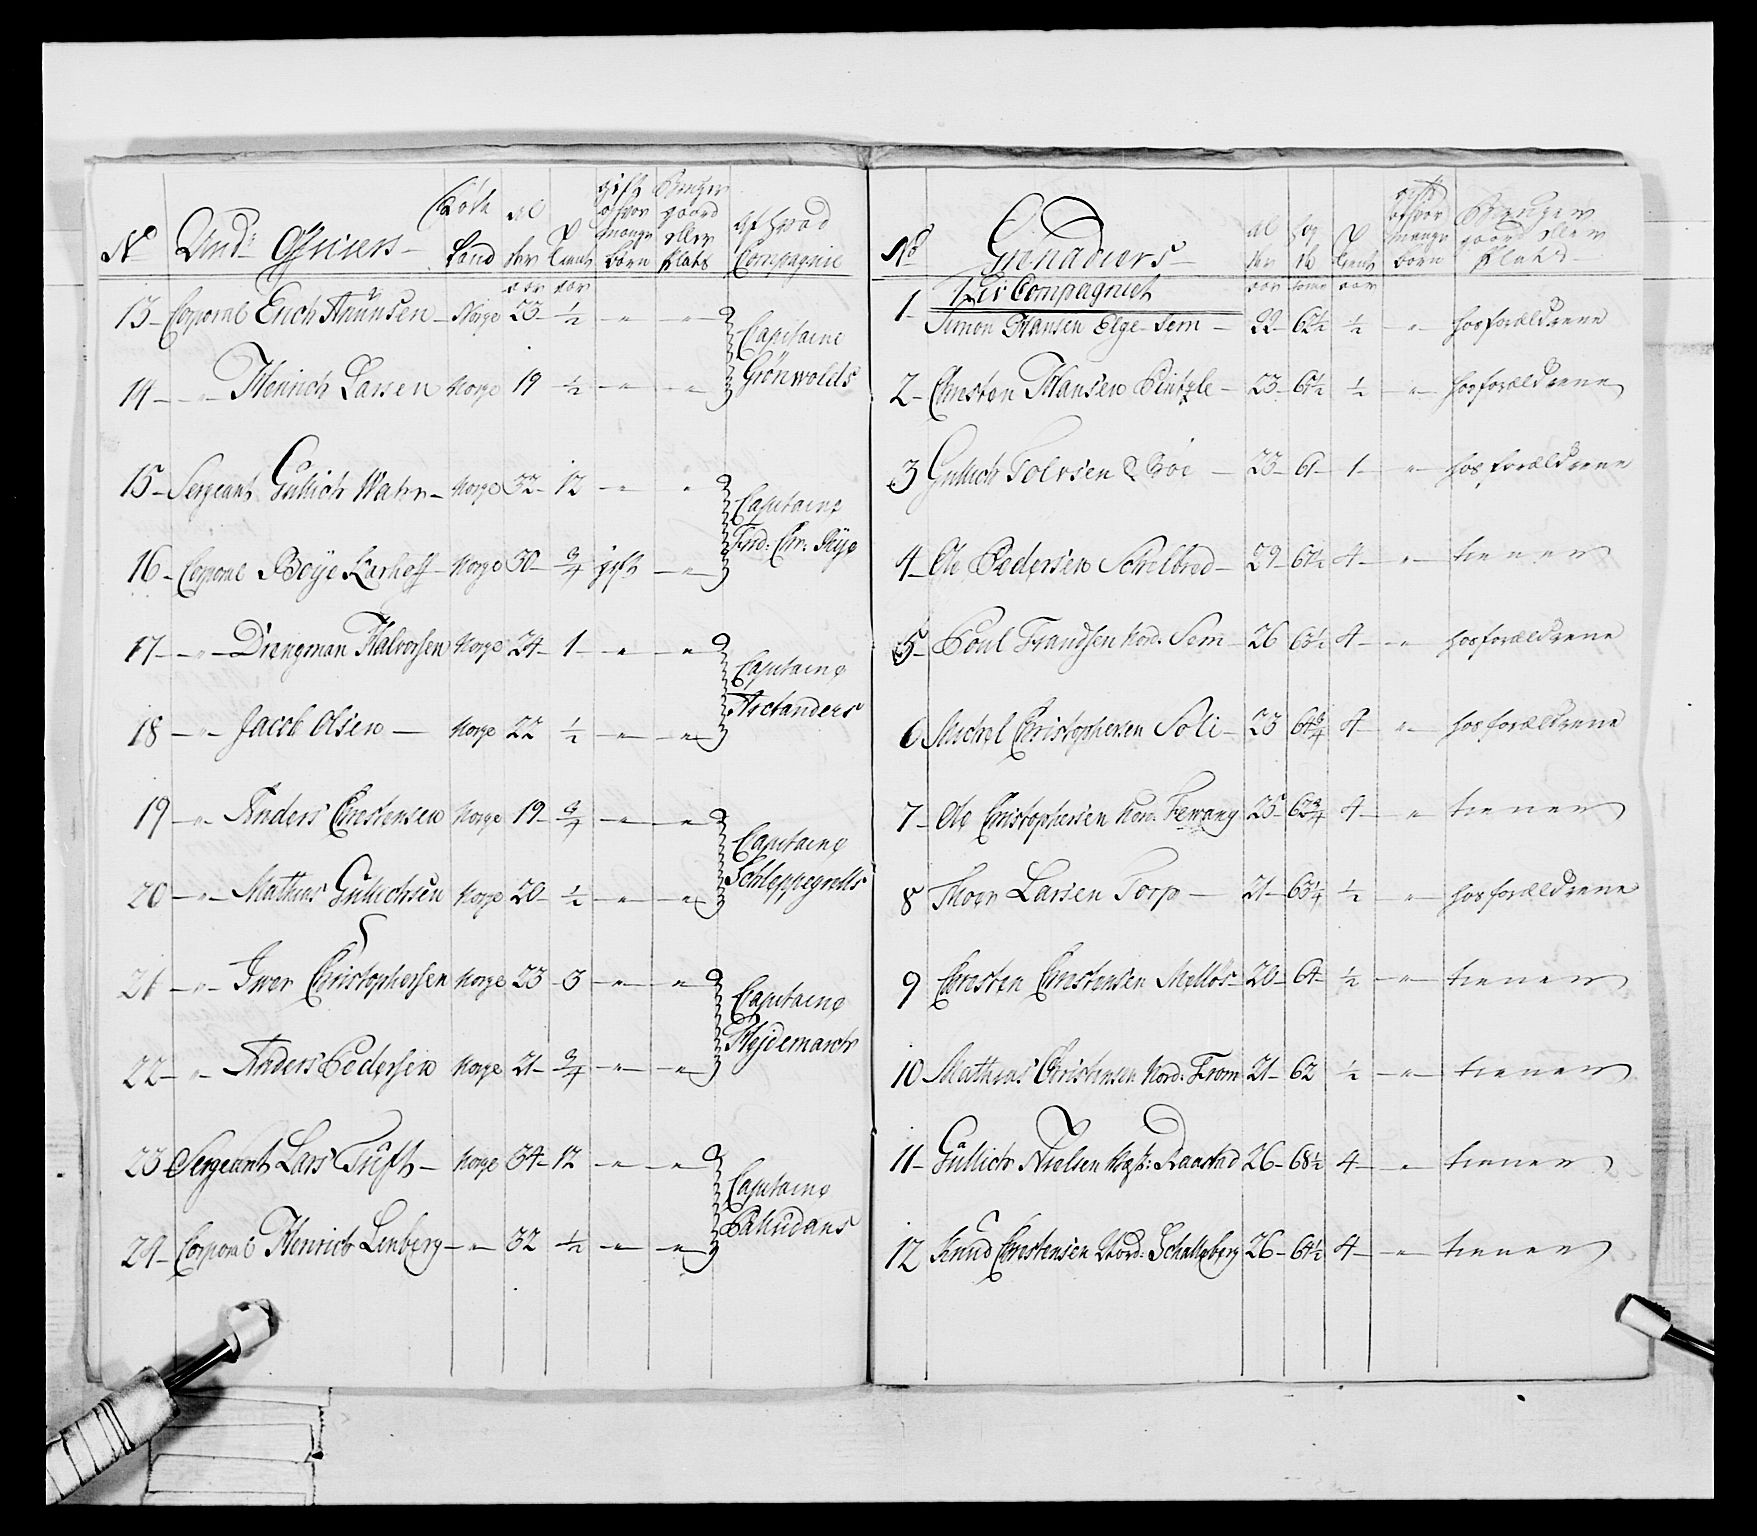 No Und: Officiers Fød Land Al der aar Tient aar gift og hvor mange børn Bruger gaard eller plads af hvad Compagnie
13 - Corporal Erich Knudsen - Norge 23 - ½ - " - " Capitaine
14 - " - Henrich Larsen Norge 19 - ½ - " - " Grønwolds
15 - Sergeant Gullich Wahr - Norge 32 - 12 - " - " Capitaine
16 - Corporal Boye Karhoff - Norge 30 - ¾ gift - " Frid: Chr: Rÿe
17 - " - Drengman Halvorsen Norge 24 - 1 - " - " Capitaine
18 - " - Jacob Olsen - Norge 22 ½ - " - " Arctanders
19 - " - Anders Christensen Norge 19 - ¾ - " - " Capitaine
20 - " - Mathias Gullichsen Norge 20 - ½ - " - " Schleppegrells
21 - " - Iwer Christophersen Norge 23 - 3 - " - " Capitaine
22 - " - Anders Pedersen Norge 21 - ¾ - " - " Hejdemarch
23 - Sergeant Lars Tufft - Norge 34 - 12 - " - " Capitaine
24 - Corporal Henrich Lenberg - " - 32 - ½ - " - " Paludans
No Grenadiers Al der aar Høy de tome Tient aar gift og hvor mange børn Bruger gaard eller plads
Liv Compagniet
1 - Simon Hansen Elge Sem - 22 - 62½ ½ - " - hos forældrene
2 - Christen Hansen - 23 - 61½ ½ - " - hos forældrene
3 Gullich Tolvsen Røe - 23 - 61 - 1 - " - hos forældrene
4 - Ole Pedersen Schelbred - 29 - 61½ 4 - " - tiener
5 - Poul Frandsen Nord: Sem - 26 63½ 4 - " - hos forældrene
6 Michel Christophersen Soli - 23 64¾ 4 - " - hos forældrene
7 - Ole Christophersen Nord: Fewang 25 - 62¾ 4 - " tiener
8 Thoer Larsen Torp - 21 - 63¼ ½ - " - hos forældrene
9 Christen Christensen Melløs - 20 - 64 - ½ - " - tiener
10 Mathias Christensen Nord: From 21 - 62 ½ - " - tiener
11 - Gullich Nielsen West: Raastad 26 - 68½ 4 - " - tiener
12 Knud Christensen Nord: Schalleberg 26 - 64½ 4 - " - tiener